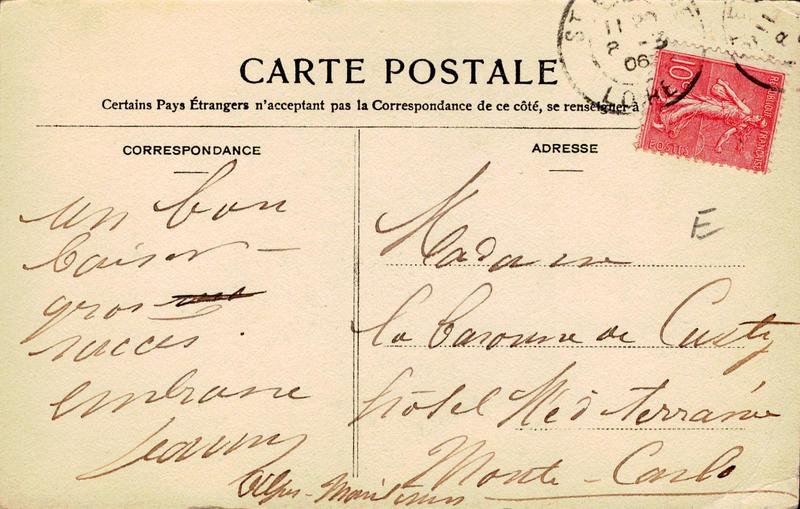 CARTE POSTALE
Certains Pays Étrangers n'acceptant pas la Correspondance de ce côté, se renseigner à
CORRESPONDANCE
un bon
baiser
gros
succès.
embrasse
ADRESSE
Madame
la Baronne de
hôtel Méditerranée
Monte-Carlo
Alpes-Maritimes
E
11
06
LOIRE
10
REPUBLIQUE FRANÇAISE
POSTES